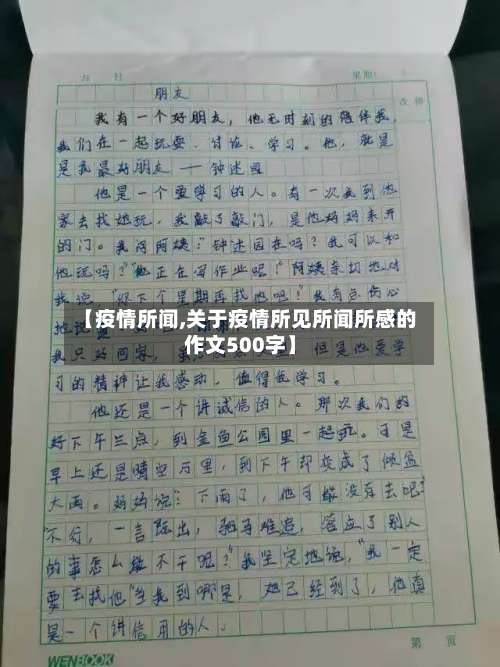 月 日 星期
朋友
改 榜
我有一个好朋友，他无时刻的陪伴我，
我们在一起玩耍、讨论、学习。他，就是
是我最好朋友——钟述园
他是一个爱学习的人。有一次我到他
家去找他玩，我敲了敲门，是他妈妈来开
的门。我问阿姨："钟述园在吗？我可以和
他玩吗？""他正在写作业呢！"阿姨亲切地对
我说"好下个星期再找他吧！"我有点伤心
地说
【疫情所闻,关于疫情所见所闻所感的
作文500字】
我只好回家，但是他爱学
习的精神让我感动，值得我学习。
他还是一个讲诚信的人。那次我们约
好下午三点，到金鱼公园里一起玩。可是
早上还是晴空万里，到下午却变成了倾盆
大雨。妈妈说："下雨了，他可能没有去吧？"
"不行，一言既出，驷马难追，答应了别人
的事怎么能不干呢？"我坚定地说，"我一定
要去找他"当我到哪是，她已经到了，他真
是一个讲信用的人。
WENBOOK
第 页